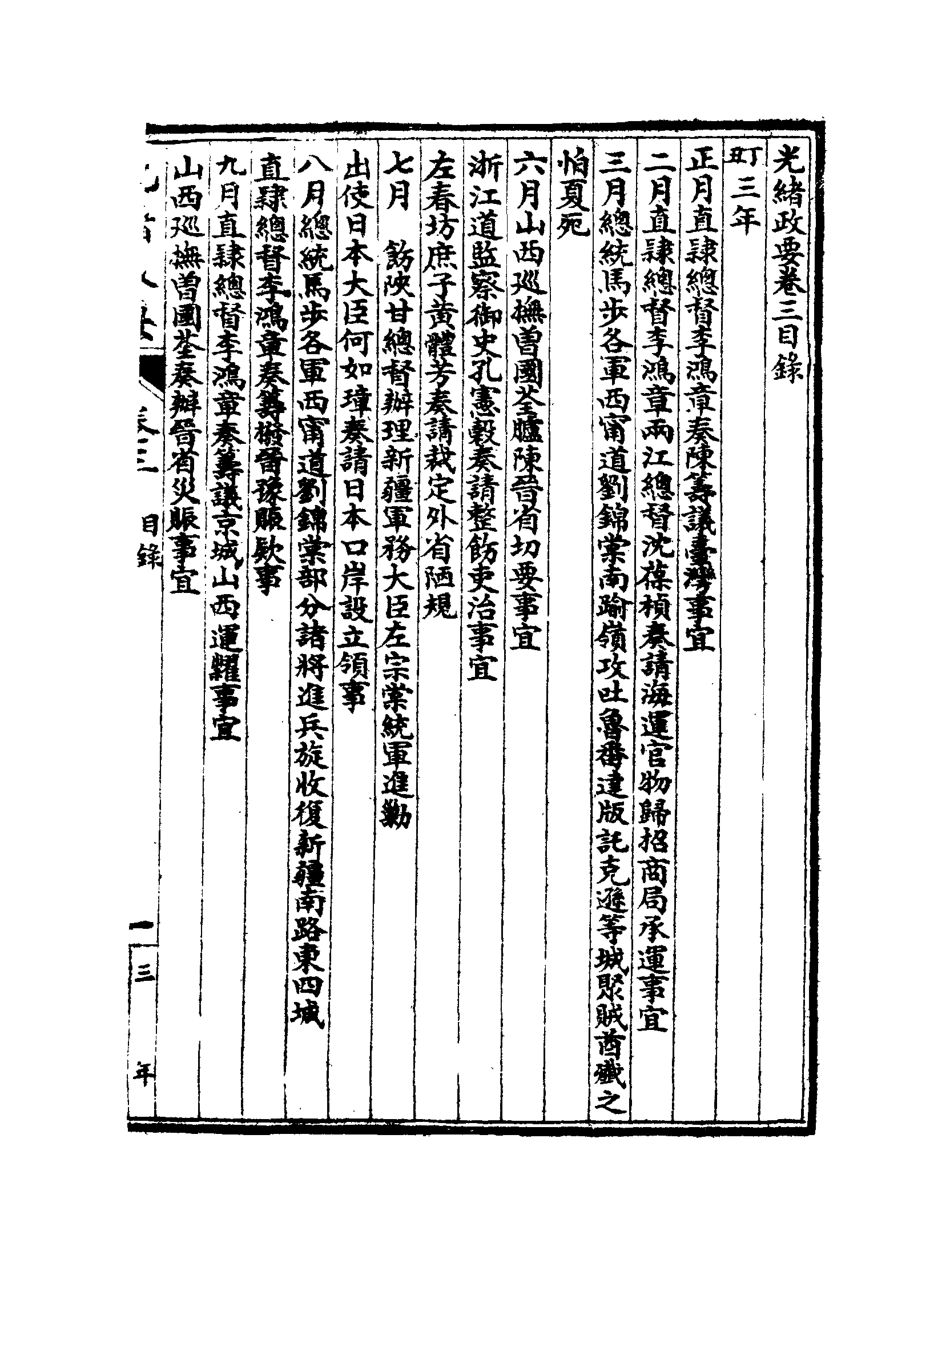 光緒政要卷三目錄
丁丑三年
正月直隸總督李鴻章奏陳籌議臺灣事宜
二月直隸總督李鴻章兩江總督沈葆楨奏請海運官物歸招商局承運事宜
三月總統馬步各軍西甯道劉錦棠南踰嶺攻吐魯番達版託克遜等城聚賊酋殲之
怕夏死
六月山西巡撫曾國荃臚陳晉省切要事宜
浙江道監察御史孔憲瑴奏請整飭吏治事宜
左春坊庶子黃體芳奏請裁定外省陋規
七月 飭陝甘總督辦理新疆軍務大臣左宗棠統軍進勦
出使日本大臣何如璋奏請日本口岸設立領事
八月總統馬步各軍西甯道劉錦棠部分諸將進兵旋收復新疆南路東四城
直隸總督李鴻章奏籌撥晉豫賑欵事
九月直隸總督李鴻章奏籌議京城山西運糶事宜
山西巡撫曾國荃奏辦晉省災賑事宜
卷三 目錄
一 三年